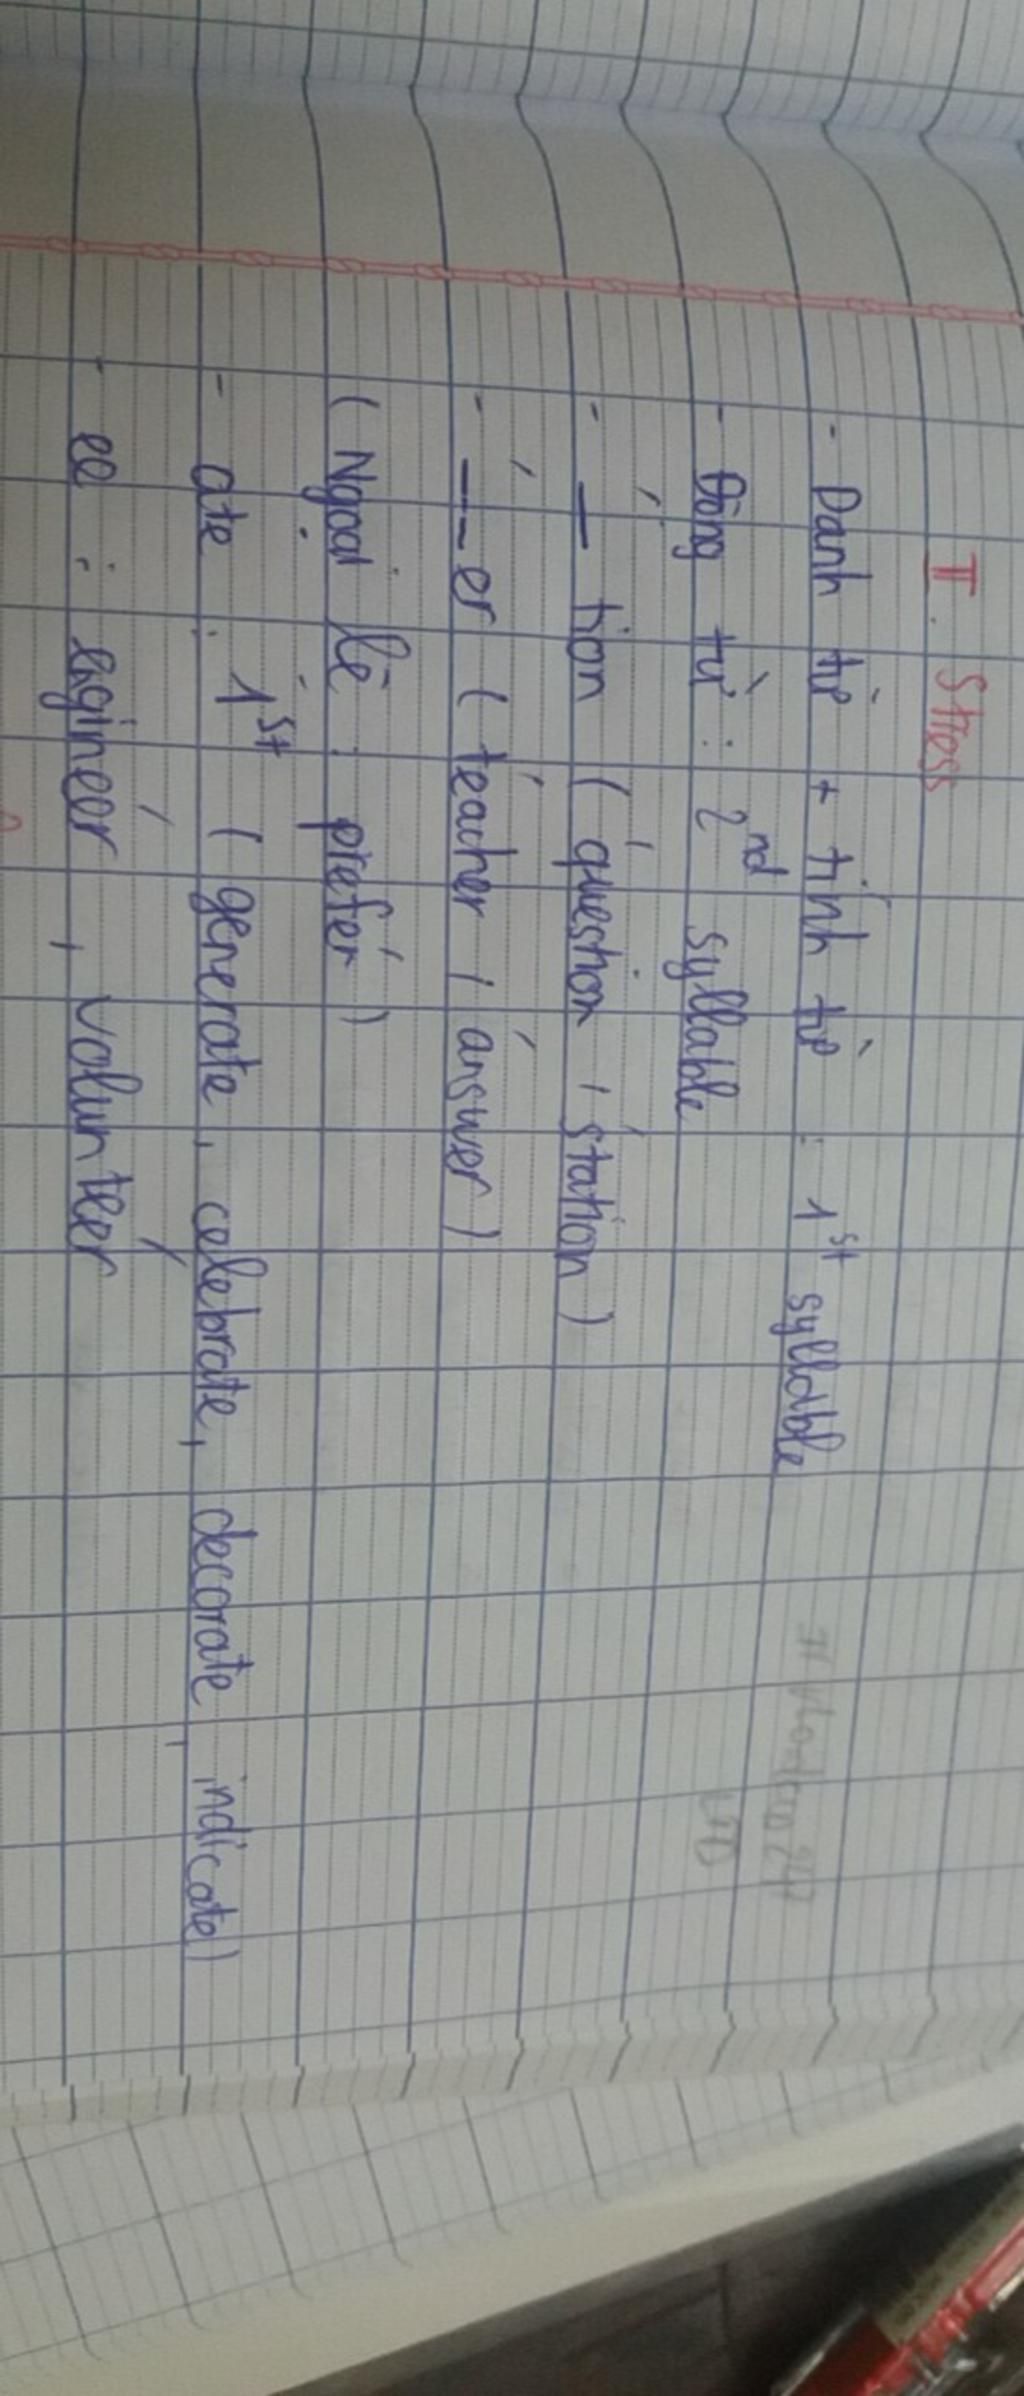 II. Stress
- Danh từ + tính từ : 1st syllable
- Động từ : 2nd syllable
- — tion ( quéstion , státion )
- –––er ( téacher , ánswer )
( Ngoại lệ : prefér )
- ate : 1st ( generate, celebrate, decorate, indicate)
- ee : engineér , volunteér